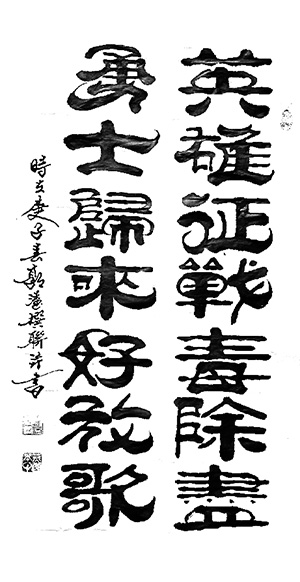 英雄征戰毒除盡
勇士歸來好放歌
時在庚子春郭港撰聯并書